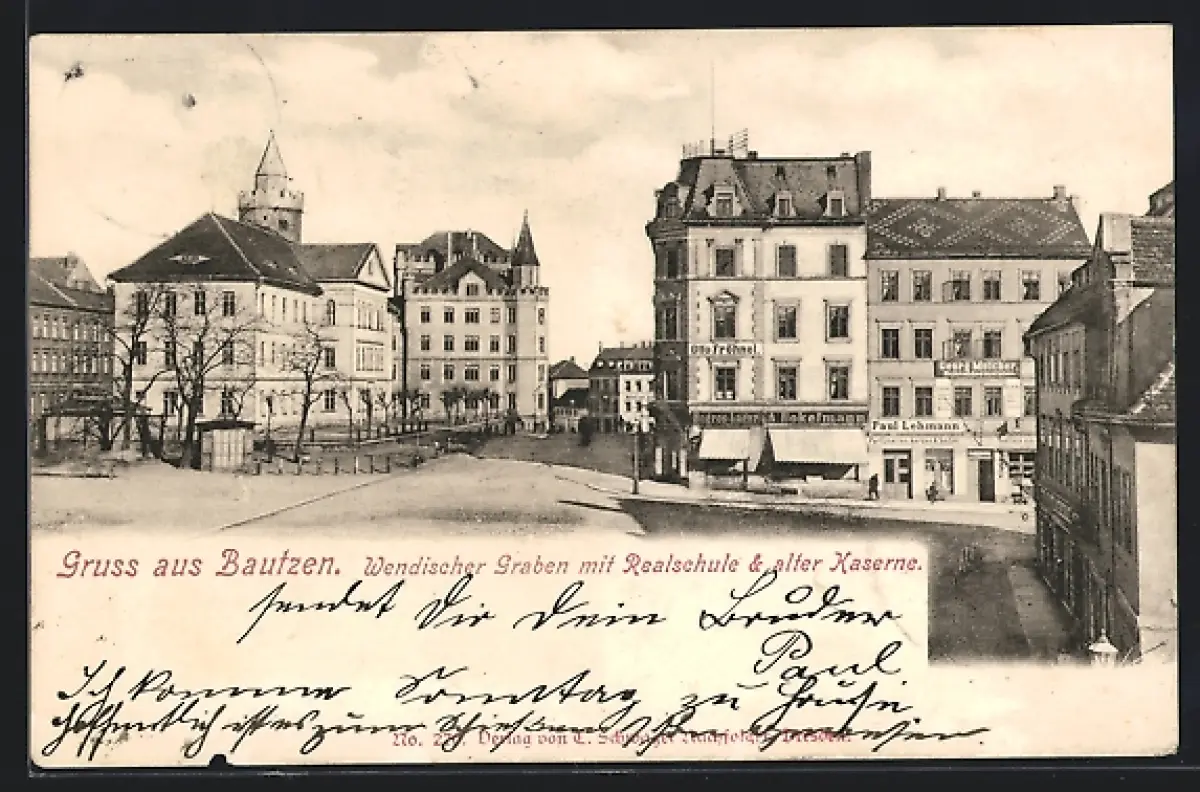 Otto Fröhnel.
Georg Melcher.
Paul Lehmann
Gruss aus Bautzen. Wendischer Graben mit Realschule & alter Kaserne.
sendet Dir Dein Bruder
Paul
Ich komme Sonntag zu Hause
hoffentlich ist es zum Schießen
No. Verlag von C. Schwager Nachfolger Dresden.